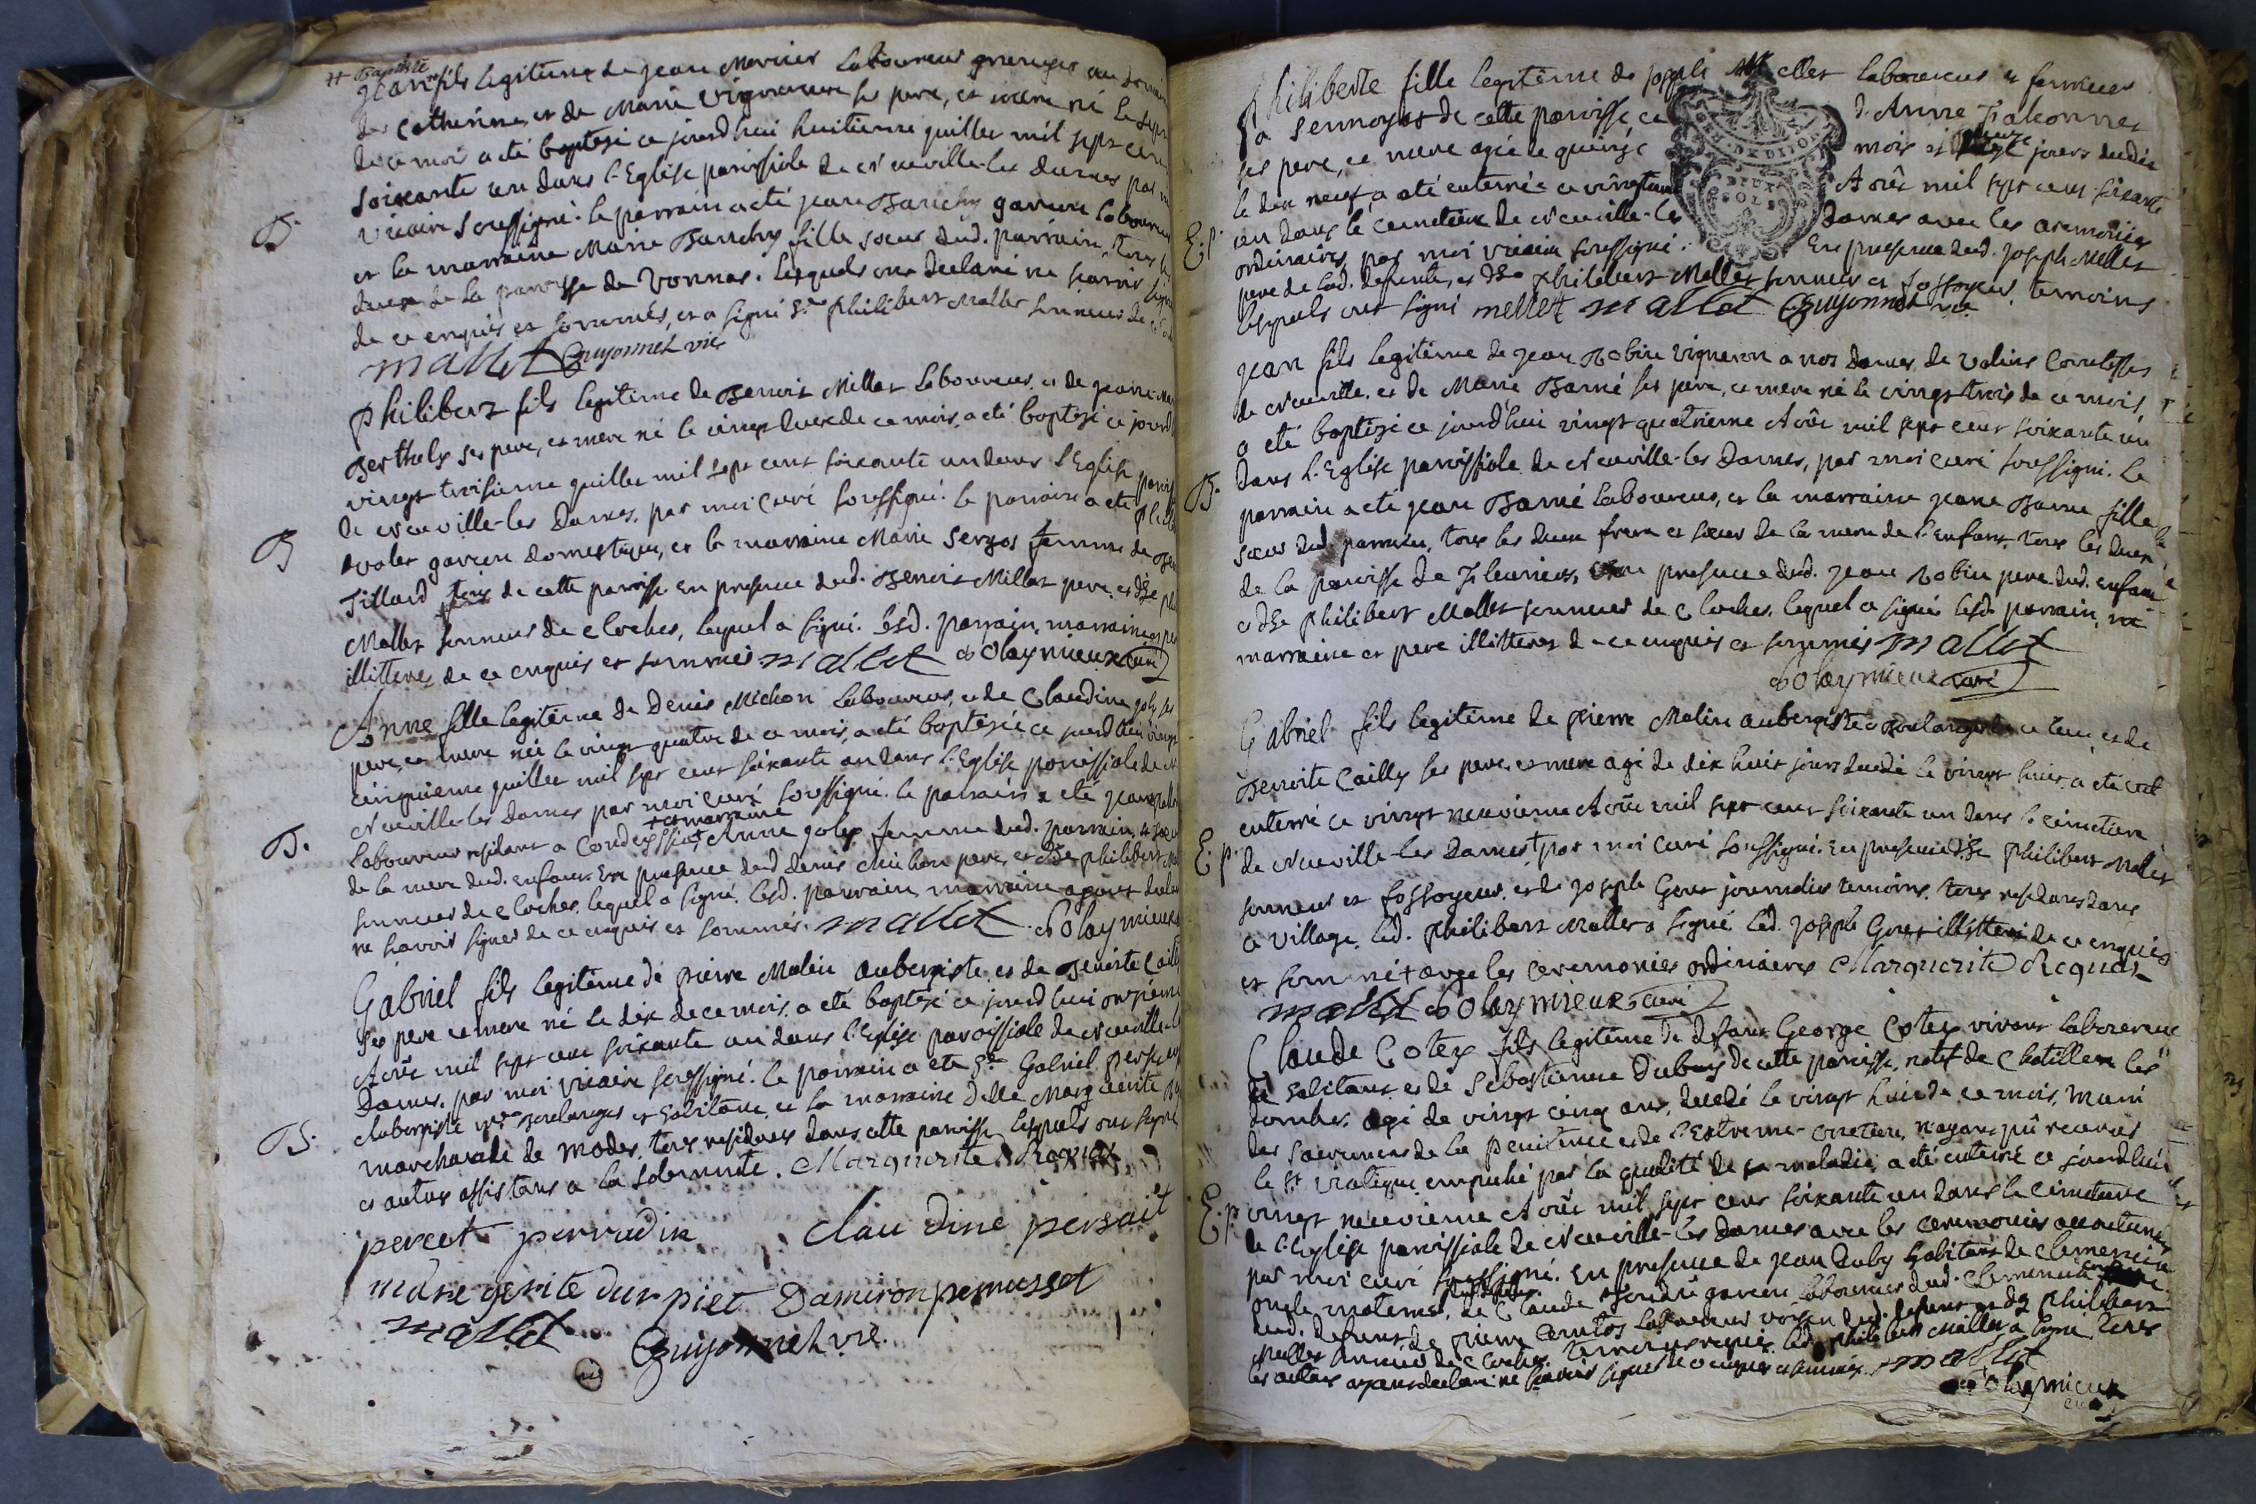 Baptiste
Jean fils legitime de jean Mercier Laboureur granger au domaine
de Catherine, et de Marie Vigneur ses pere, et mere né le sept
de ce mois a été baptisé ce jourd'hui huitieme juillet mil sept cent
soixante un dans l'Eglise paroissiale de Neuville-les Dames par moi
vicaire soussigné. le parrain a été jean Barichy garcon laboureur
B.
et la marraine Marie Barichy fille soeur dud. parrain, tous les
deux de la paroisse de Vonnas. lesquels ont declaré ne scavoir signer
de ce enquis et sommés, et a signé Sr. philibert Mallet sonneur de
mallet Guyonnet vic.
Philibert fils legitime de Benoit Millet Laboureur, et de jeanne Marie
Berthely ses pere, et mere né le vingt deux de ce mois, a été baptisé ce jourd
vingt troisieme juillet mil sept cent soixante un dans l'Eglise paroiss
de Neuville-les Dames, par moi curé soussigné. le parrain a été phili
B
valet garcon domestique, et la marraine Marie Sergos femme de Ben
Tillard tous de cette paroisse. En presence dud. Benoit Millet pere, et de Phi
Mallet sonneur de cloches, lequel a signé. lesd. parrain, marraine et per
illitteres de ce enquis et sommés. mallet Dolaymieux curé
Anne fille legitime de Denis Michon Laboureur, et de Claudine goly ses
pere, et mere née le vingt quatre de ce mois, a été baptisée ce jourd'hui vingt
cinquieme juillet mil sept cent soixante un dans l'Eglise paroissiale de
Neuville-les Dames par moi curé soussigné. le parrain a été jean
B.
+ et marraine
Laboureur residant a Condeyssiat + Anne goly femme dud. parrain, et soeur
de la mere dud. enfant. En presence dud. Denis Michon pere, et de philibert Ma
sonneur de cloches, lequel a signé. lesd. parrain marraine ayant declar
ne scavoir signer de ce enquis et sommés. mallet Dolaymieux
Gabriel fils legitime de pierre Molin aubergiste, et de Benoite Cailly
ses pere et mere né le dix de ce mois, a été baptisé ce jourd'hui onzieme
Août mil sept cent soixante un dans l'Eglise paroissiale de Neuville-les
Dames, par moi vicaire soussigné. le parrain a été Sr. Gabriel
B.
aubergiste boulanger et habitant, et la marraine Delle Marguerite
marchande de modes, tous residants dans cette paroisse lesquels ont signé
et autres assistans a la solemnité. Marguerite Requet
percet perradin Claudine persait
maregerite durpiet Damiron permusset
mallet Guyonnet vic.
Philiberte fille legitime de joseph Mellet laboureur et fermier
a sennoyas de cette paroisse et d'Anne Falconnet
ses pere, et mere agée de quinze mois et jours decedée
le dix neuf a été enterrée ce vingtun Août mil sept cent soixante
E.p.
un dans le cemetiere de Neuville-les Dames avec les ceremonies
GEN. DE DIJON
DEUX SOLS
ordinaires, par moi vicaire soussigné. En presence dud. joseph Mellet
pere de lad. defunte, et de Philibert Mallet sonneur et fossoyeur, temoins
lesquels ont signé mellet mallet Guyonnet vic.
Jean fils legitime de jean Robin vigneron a nos dames de
de Neuville, et de Marie Barné ses pere, et mere né le vingt-trois de ce mois,
a été baptisé ce jourd'hui vingt quatrieme Août mil sept cent soixante un
dans l'Eglise paroissiale de Neuville-les Dames, par moi curé soussigné. Le
B.
parrain a été jean Barné laboureur, et la marraine jeane Barné fille
soeur dud. parrain, tous les deux frere et soeur de la mere de l'enfant, tous les deux
de la paroisse de Fleurieux, en presence dud. jean Robin pere dud. enfant
et de philibert Mallet sonneur de cloches, lequel a signé lesd. parrain,
marraine et pere illitteres de ce enquis et sommés mallet
Dolaymieux curé
Gabriel fils legitime de pierre Molin aubergiste et boulanger en ce lieu, et de
Benoite Cailly ses pere, et mere agé de dix huit jours decedé le vingt huit a été
enterré ce vingt neuvieme Août mil sept cent soixante un dans le cimetiere
E.p.
de Neuville-les Dames + par moi curé soussigné. en presence de Philibert Mallet
sonneur et fossoyeur, et de joseph Goret journalier temoins, tous residants dans
ce village. led. philibert mallet a signé, led. joseph Goret illittere de ce enquis
et sommé + avec les ceremonies ordinaires Marguerite Requet
mallet Dolaymieux curé
Claude Cotex fils legitime de defunt George Cotex vivant laboureur
et habitant, et de Sebastienne Dubuy de cette paroisse, natif de Chatillon les
dombes, agé de vingt cinq ans, decedé le vingt huit de ce mois, muni
des sacremens de la penitence et de l'Extreme-onction, n'ayant pû recevoir
le St. viatique empeché par la qualité de sa maladie, a été enterré ce jourd'hui
E.p.
vingt neuvieme Août mil sept cent soixante un dans le cimetiere
de l'Eglise paroissiale de Neuville-les Dames avec les ceremonies accoutumées
par moi curé soussigné. En presence de jean Duby habitant de Clemencia
oncle maternel, de Claude garcon laboureur dud. Clemencia
dud. defunt, de pierre laboureur voisin dud. defunt et de philibert
Mallet sonneur de cloches, temoins requis. led. philibert Mallet a signé, tous
les autres ayant declaré ne scavoir signer de ce enquis et sommés. mallet
Dolaymieux
curé